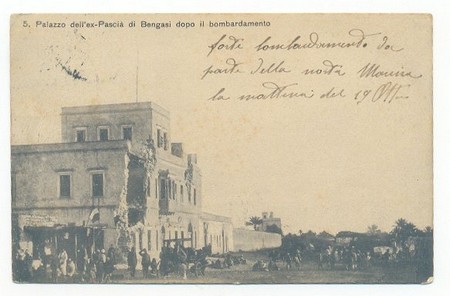 5. Palazzo dell'ex-Pascià di Bengasi dopo il bombardamento
forte bombardamento da
parte della nostra Marina
la mattina del 19